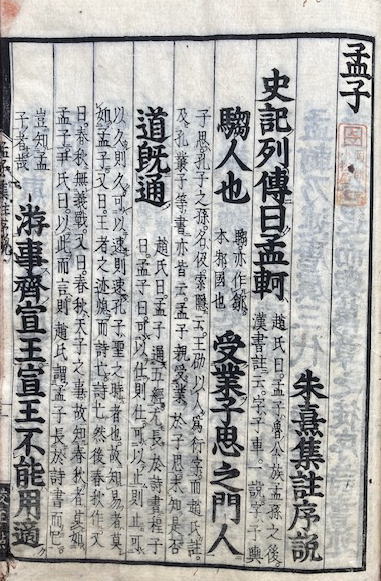 孟子
朱熹集註序說
史記列傳曰孟軻
趙氏曰孟子魯公族孟孫之後
漢書註云字子車一說字子輿
騶人也
騶亦作鄒
本邾國也
受業子思之門人
子思孔子之孫名伋索隱云王劭以人爲衍字而趙氏註
及孔叢子等書亦皆云孟子親受業於子思未知是否
道旣通
趙氏曰孟子通五經尤長於詩書程子
曰孟子曰可以仕則仕可以止則止可
以久則久可以速則速孔子聖之時者也故知易者莫
如孟子又曰王者之迹熄而詩亡詩亡然後春秋作又
曰春秋無義戰又曰春秋天子之事故知春秋者莫如
孟子尹氏曰以此而言則趙氏謂孟子長於詩書而已
豈知孟
子者哉
游事齊宣王宣王不能用適
孟子集註序說